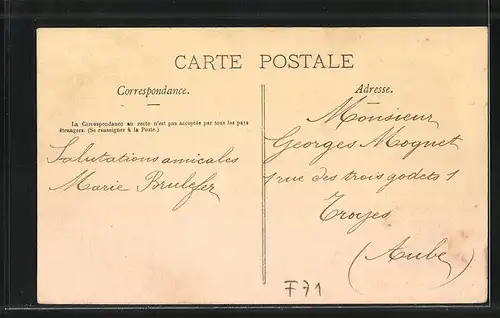 CARTE POSTALE
Correspondance.
La Correspondance au recto n'est pas acceptée par tous les pays
étrangers. (Se renseigner à la Poste.)
Salutations amicales
Marie Brulefer
Adresse.
Monsieur
Georges Moquet
1 rue des trois godets 1
Troyes
(Aube)
F71